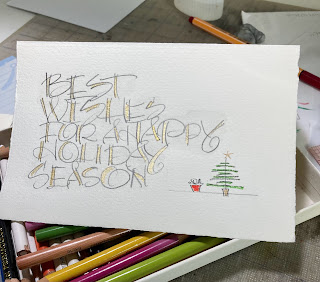 BEST
WISHES
FOR A HAPPY
HOLIDAY
SEASON